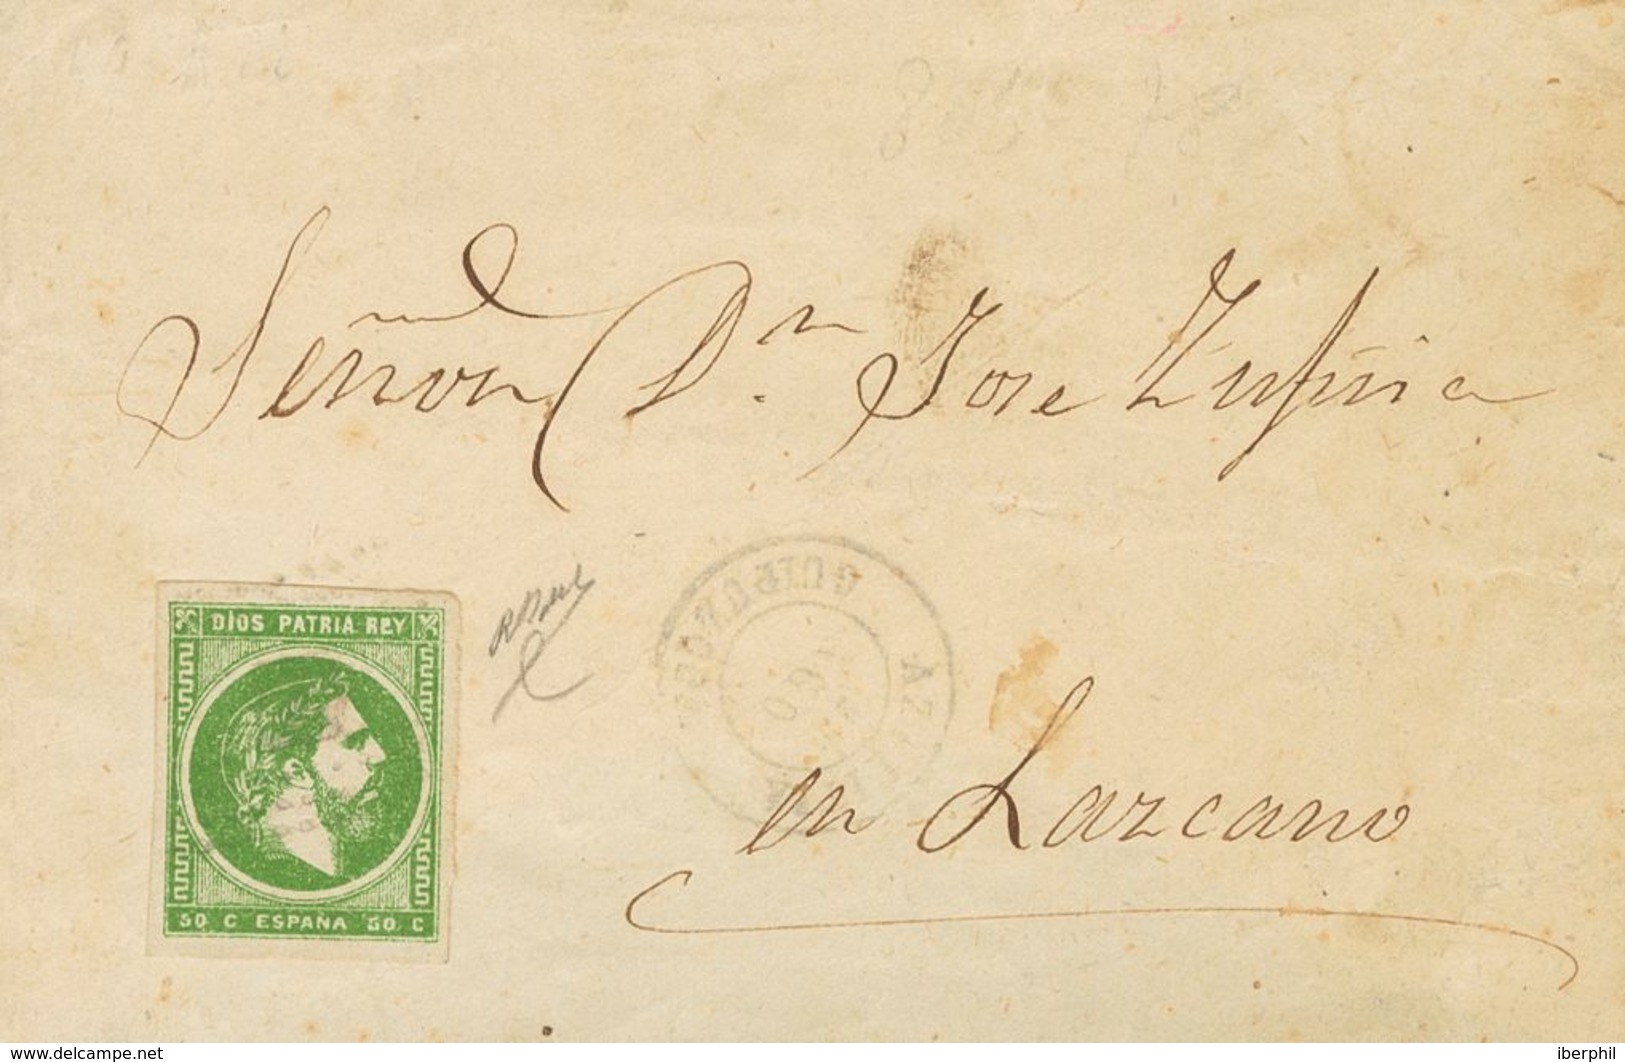 Señor Dn. Jose Zufiria
DIOS PATRIA REY
GUIPUZCOA
50 C ESPAÑA 50 C
en Lazcano
www.delcampe.net
iberphil